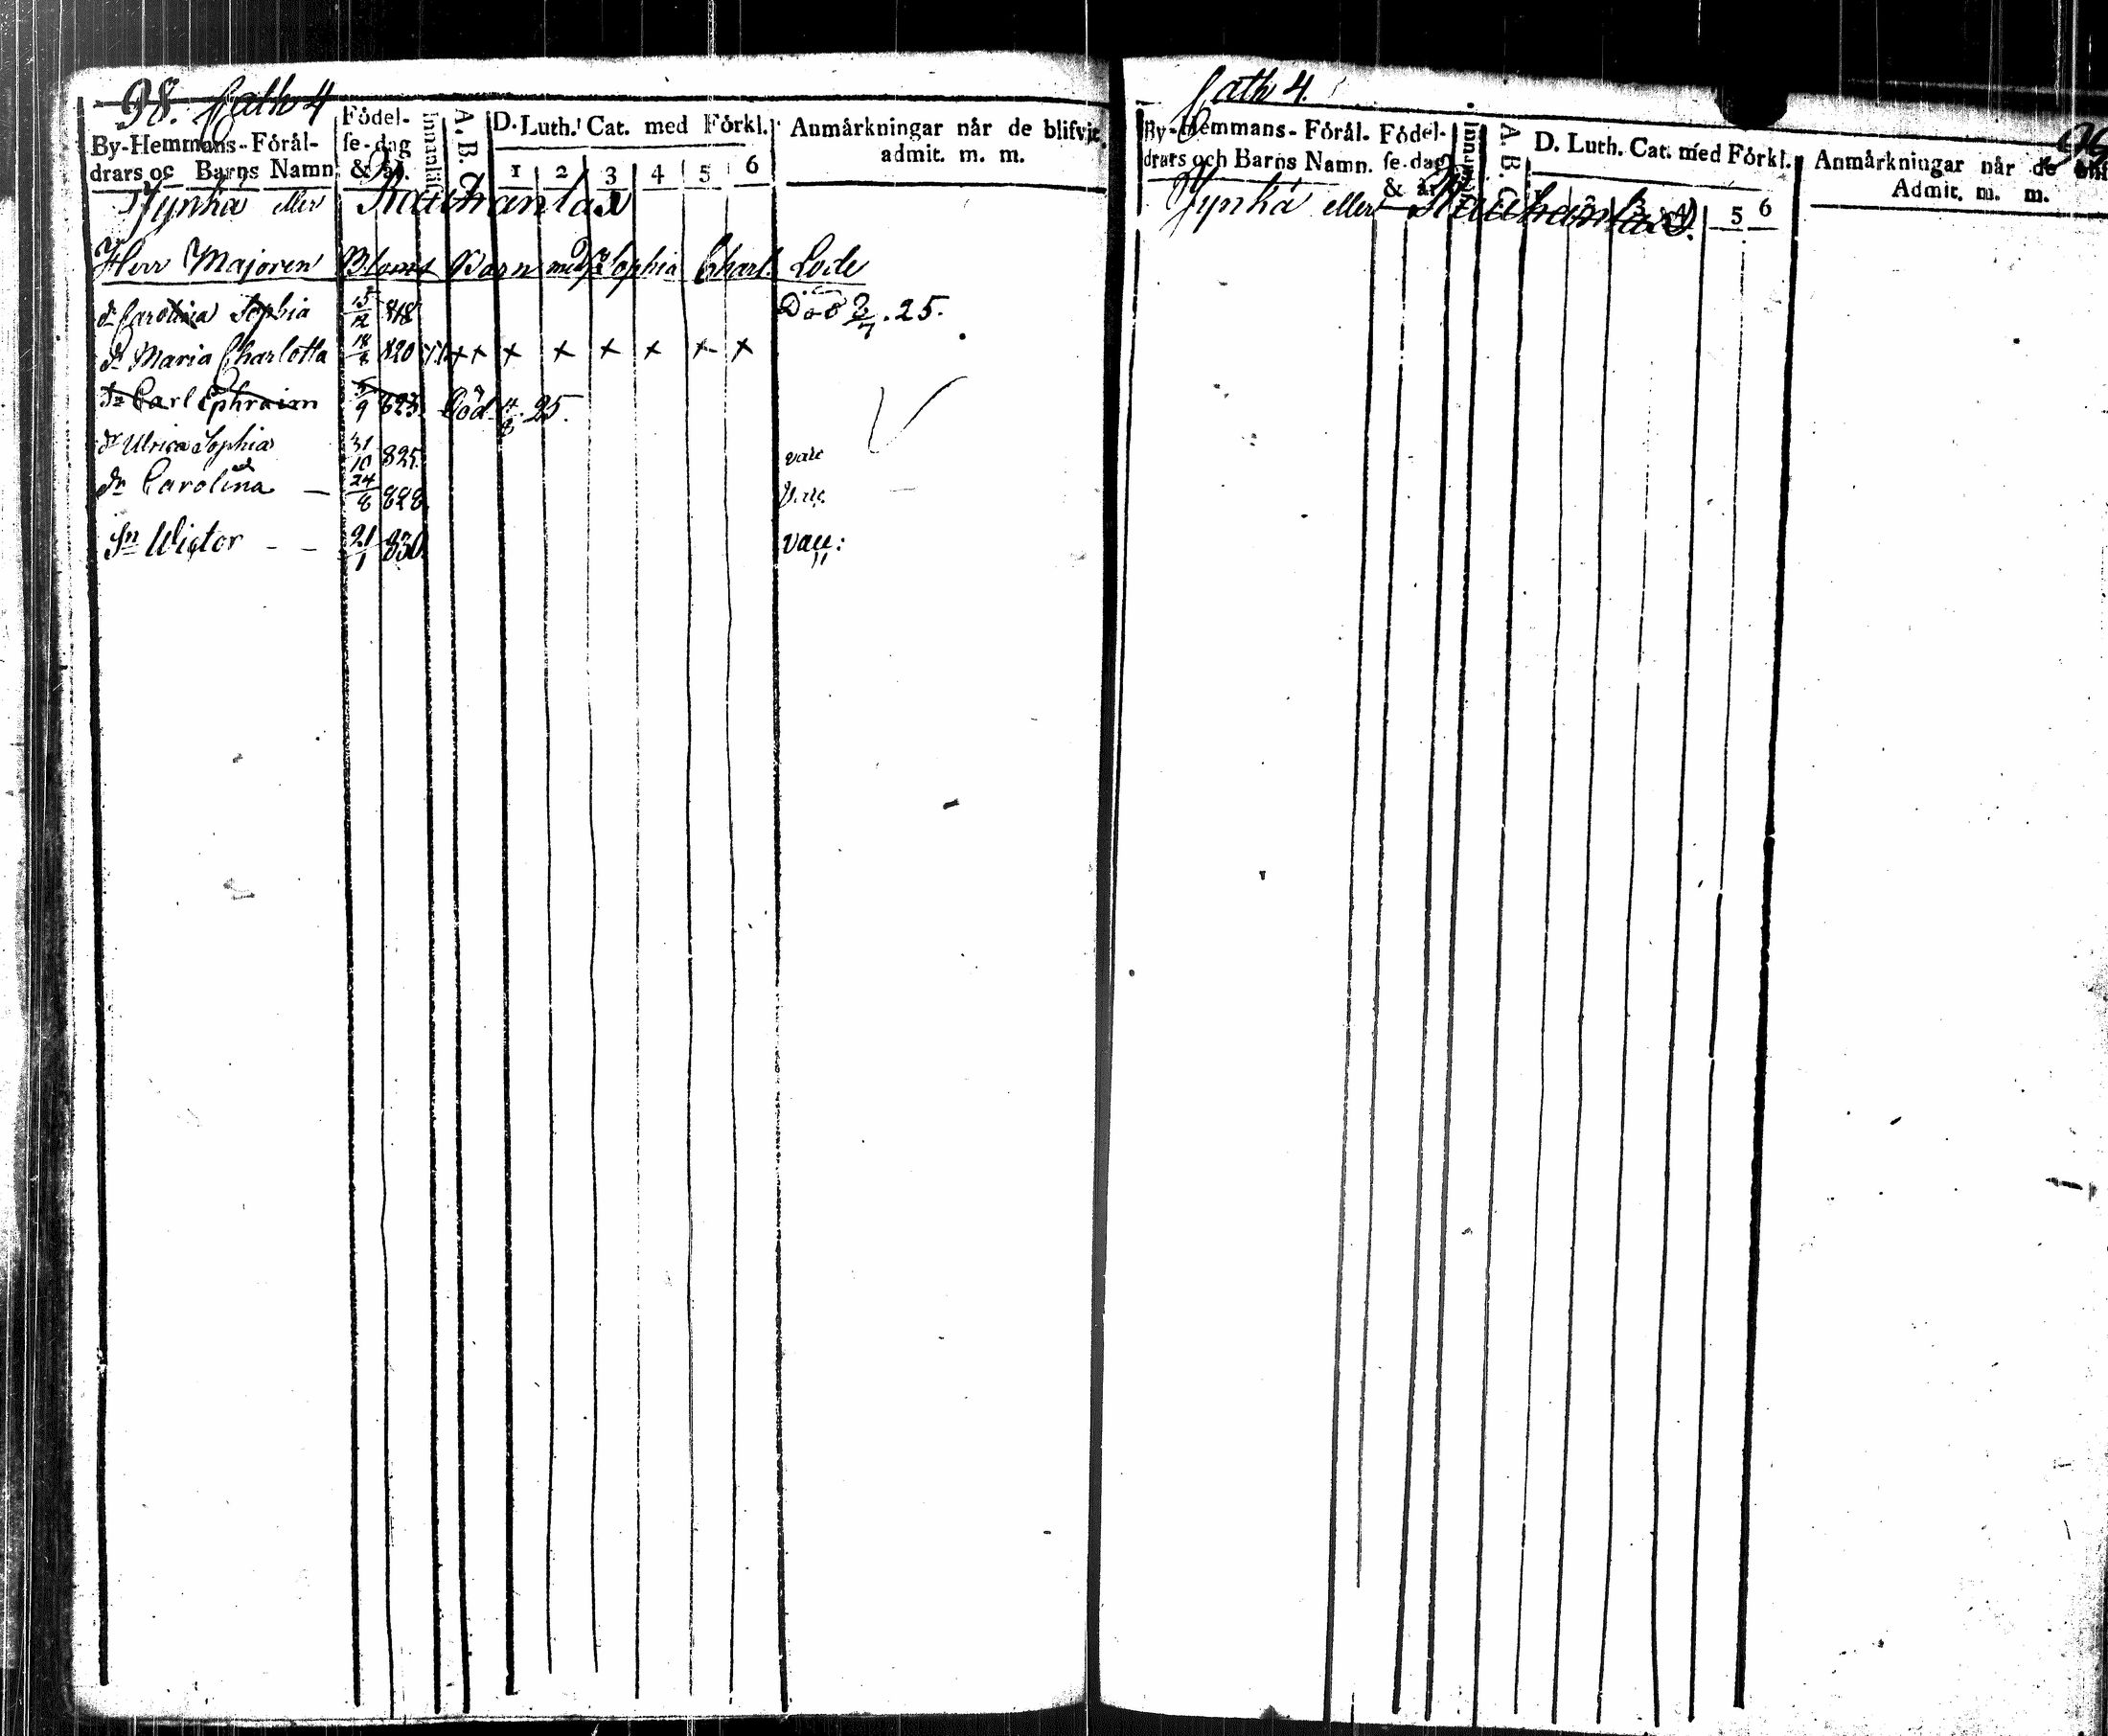 98. Cath 4
By-Hemmans-Fôrål-
drars oc Barns Namn
Fôdel-
se-dag
& år.
A. B. C
D. Luth. Cat. med Fôrkl.
1 2 3 4 5 6
Anmårkningar når de blifvit
admit. m. m.
Jynhä eller Rauhanlax
Herr Majoren Bloms Barn med Sophia Charl. Lode
dr Carolina Sophia 15/12 818 Död 3/7. 25.
dr Maria Charlotta 18/8 820 x x x x x x x x
Sn Carl Ephraim 5/9 823. Död 4/8. 25.
dr Ulrica Sophia 31/10 825. vacc
dr Carolina — 24/8 828 Vacc
Sn Wictor - - 21/1 830. vacc:
Cath 4. 99
By-Hemmans-Fôrål-
drars och Barns Namn.
Fôdel-
se-dag
& år
A. B. C
D. Luth. Cat. med Fôrkl.
2 3 4 5 6
Anmårkningar når de
Admit. m. m.
Jynhä eller Rauhanlax.